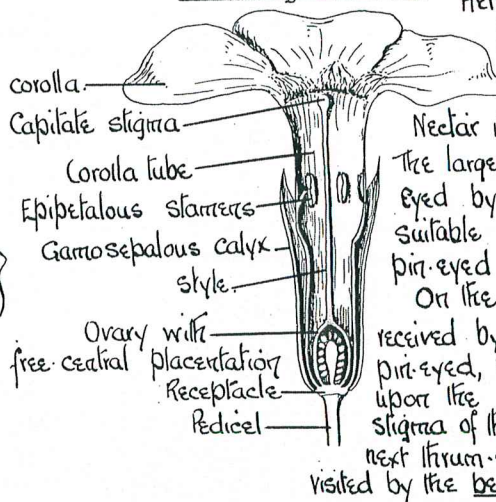 corolla.
Capitate stigma
Corolla tube
Epipetalous stamens
Gamosepalous calyx
style.
Ovary with
free-central placentation
Receptacle
Pedicel
Nectar
The large
eyed by
suitable
pin-eyed
On the
received by
pin-eyed,
upon the
stigma of th
next thrum-
visited by the be